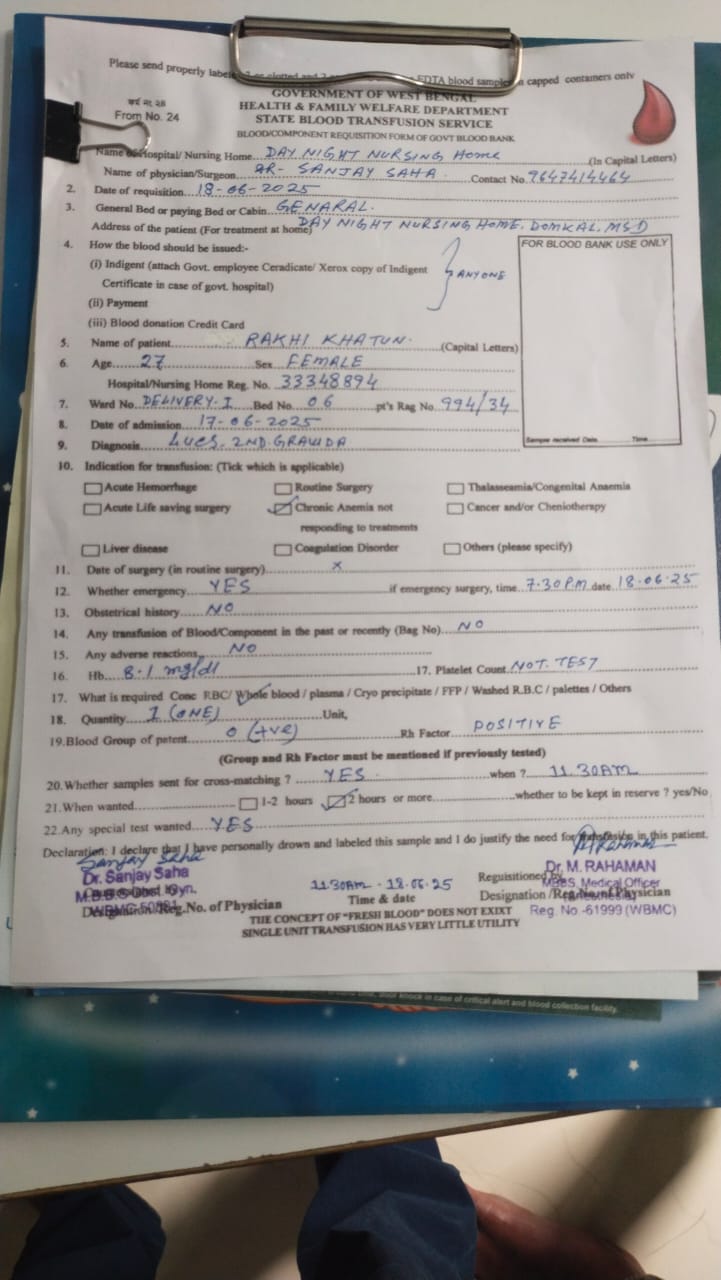 Please send properly labele EDTA blood sample in capped containers only
फर्म नং ২৪
From No. 24
GOVERNMENT OF WEST BENGAL
HEALTH & FAMILY WELFARE DEPARTMENT
STATE BLOOD TRANSFUSION SERVICE
BLOOD/COMPONENT REQUISITION FORM OF GOVT BLOOD BANK
Name of Hospital/ Nursing Home DAY NIGHT NURSING Home (In Capital Letters)
Name of physician/Surgeon DR- SANJAY SAHA Contact No. 9647414464
2. Date of requisition 18-06-2025
3. General Bed or paying Bed or Cabin GENARAL.
Address of the patient (For treatment at home) DAY NIGHT NURSING HOME, DOMKAL, MSD
4. How the blood should be issued:-
FOR BLOOD BANK USE ONLY
(i) Indigent (attach Govt. employee Ceradicate/ Xerox copy of Indigent
Certificate in case of govt. hospital)
ANYONE
(ii) Payment
(iii) Blood donation Credit Card
5. Name of patient RAKHI KHATUN. (Capital Letters)
6. Age 27 Sex FEMALE
Hospital/Nursing Home Reg. No. 33348894
7. Ward No. DELIVERY-I Bed No 06 pt's Rag No 994/34
8. Date of admission 17-06-2025
Sample received Date Time
9. Diagnosis LUCS. 2ND. GRAVIDA
10. Indication for transfusion: (Tick which is applicable)
Acute Hemorrhage Routine Surgery Thalasseamia/Congenital Anaemia
Acute Life saving surgery Chronic Anemia not Cancer and/or Cheniotherapy
responding to treatments
Liver disease Coagulation Disorder Others (please specify)
11. Date of surgery (in routine surgery) x
12. Whether emergency YES if emergency surgery, time 7.30 P.M date 18.06.25
13. Obstetrical history NO
14. Any transfusion of Blood/Component in the past or recently (Bag No) NO
15. Any adverse reactions NO
16. Hb 8.1 mg/dl 17. Platelet Count NOT. TEST
17. What is required Conc RBC/ Whole blood / plasma / Cryo precipitate / FFP / Washed R.B.C / palettes / Others
18. Quantity 1 (ONE) Unit,
19. Blood Group of patent O (+ve) Rh Factor POSITIVE
(Group and Rh Factor must be mentioned if previously tested)
20. Whether samples sent for cross-matching ? YES when ? 11.30AM
21. When wanted 1-2 hours 2 hours or more whether to be kept in reserve ? yes/No
22. Any special test wanted YES
Declaration: I declare that I have personally drown and labeled this sample and I do justify the need for transfusion in this patient.
Sanjay Saha
Dr. Sanjay Saha
M.B.B.S Obst. Gyn.
Reg. No. of Physician
11.30AM - 18.06.25
Time & date
Dr. M. RAHAMAN
Reguisitioned by
MBBS, Medical Officer
Designation /Reg.No.of Physician
Reg. No -61999 (WBMC)
THE CONCEPT OF "FRESH BLOOD" DOES NOT EXIXT
SINGLE UNIT TRANSFUSION HAS VERY LITTLE UTILITY
door knock in case of critical alert and blood collection facility.